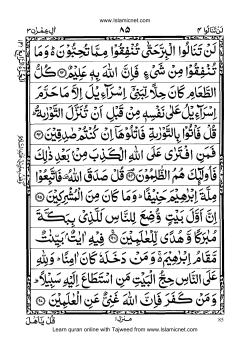 www.Islamicnet.com
لن تنالوا ٤
٨٥
ال عمرٰن ٣
لَنْ تَنَالُوا الْبِرَّ حَتّٰى تُنْفِقُوْا مِمَّا تُحِبُّوْنَ ۬ؕ وَمَا
تُنْفِقُوْا مِنْ شَيْءٍ فَاِنَّ اللّٰهَ بِهٖ عَلِيْمٌ ﴿۹۲﴾ كُلُّ
الطَّعَامِ كَانَ حِلًّا لِّبَنِيْٓ اِسْرَآءِيْلَ اِلَّا مَا حَرَّمَ
اِسْرَآءِيْلُ عَلٰى نَفْسِهٖ مِنْ قَبْلِ اَنْ تُنَزَّلَ التَّوْرٰىةُ ؕ
قُلْ فَاْتُوْا بِالتَّوْرٰىةِ فَاتْلُوْهَآ اِنْ كُنْتُمْ صٰدِقِيْنَ ﴿۹۳﴾
فَمَنِ افْتَرٰى عَلَى اللّٰهِ الْكَذِبَ مِنْۢ بَعْدِ ذٰلِكَ
فَاُولٰٓئِكَ هُمُ الظّٰلِمُوْنَ ﴿۹۴﴾ قُلْ صَدَقَ اللّٰهُ فَاتَّبِعُوْا
مِلَّةَ اِبْرٰهِيْمَ حَنِيْفًا ؕ وَمَا كَانَ مِنَ الْمُشْرِكِيْنَ ﴿۹۵﴾
اِنَّ اَوَّلَ بَيْتٍ وُّضِعَ لِلنَّاسِ لَلَّذِيْ بِبَكَّةَ
مُبٰرَكًا وَّهُدًى لِّلْعٰلَمِيْنَ ﴿۹۶﴾ فِيْهِ اٰيٰتٌۢ بَيِّنٰتٌ
مَّقَامُ اِبْرٰهِيْمَ ۬ۚ وَمَنْ دَخَلَهٗ كَانَ اٰمِنًا ؕ وَلِلّٰهِ
عَلَى النَّاسِ حِجُّ الْبَيْتِ مَنِ اسْتَطَاعَ اِلَيْهِ سَبِيْلًا ؕ
وَمَنْ كَفَرَ فَاِنَّ اللّٰهَ غَنِيٌّ عَنِ الْعٰلَمِيْنَ ﴿۹۷﴾
قُلْ يٰٓاَهْلَ
منزل ١
85
Learn quran online with Tajweed from www.Islamicnet.com